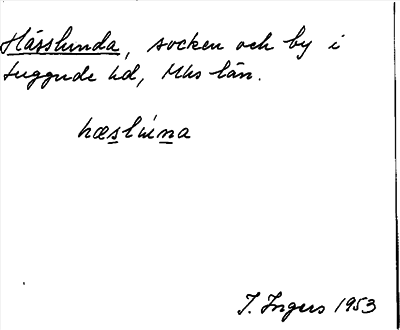 Hässlunda, socken och by i
Luggude hd, Mhs län.
hæslúna
I. Ingers 1953